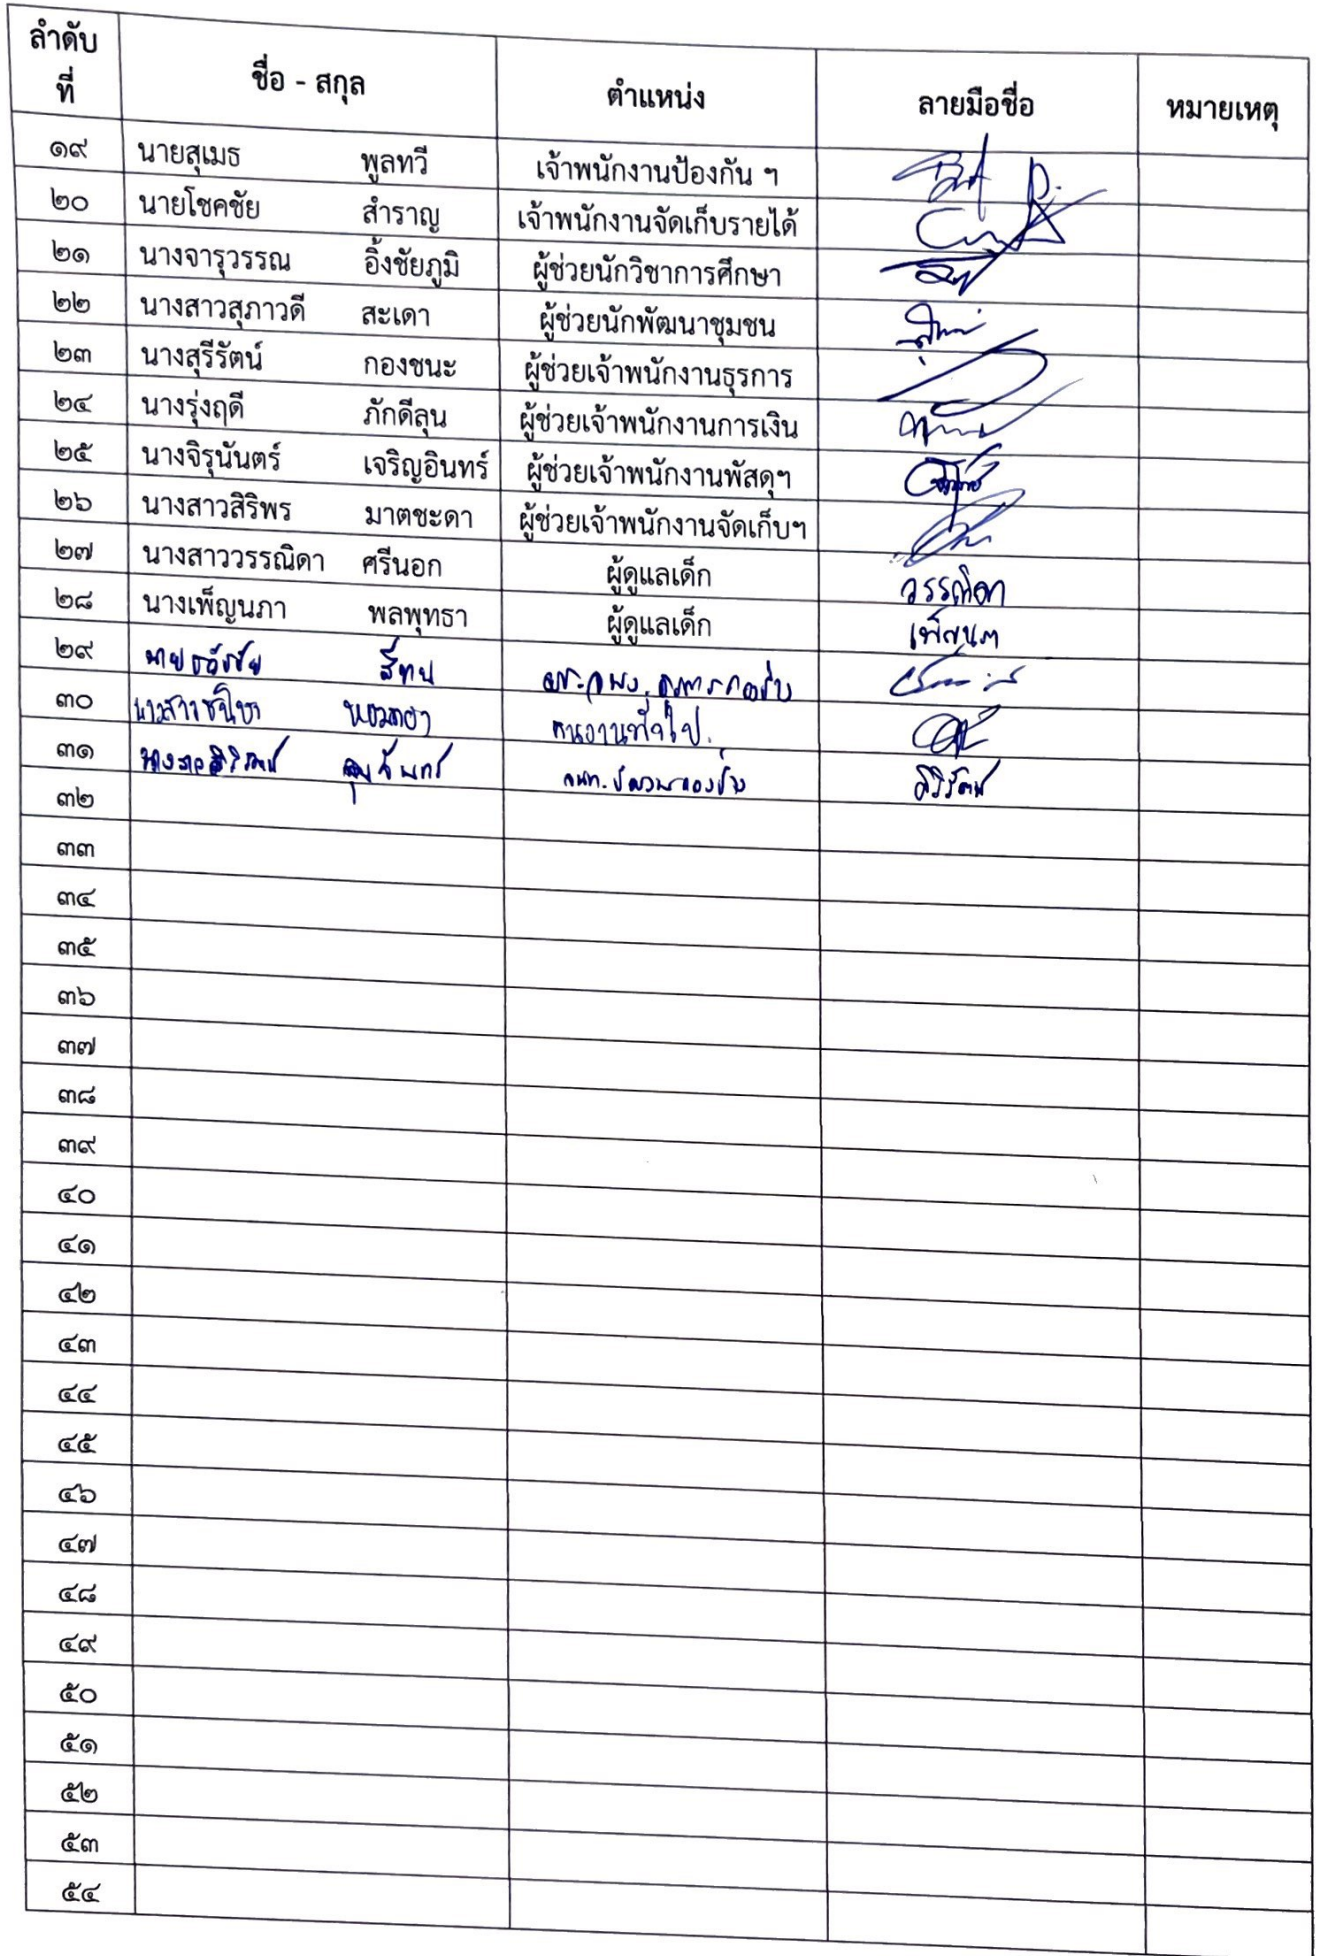 ลำดับที่ ชื่อ - สกุล ตำแหน่ง ลายมือชื่อ หมายเหตุ
๑๙ นายสุเมธ พูลทวี เจ้าพนักงานป้องกัน ฯ
๒๐ นายโชคชัย สำราญ เจ้าพนักงานจัดเก็บรายได้
๒๑ นางจารุวรรณ อิ้งชัยภูมิ ผู้ช่วยนักวิชาการศึกษา
๒๒ นางสาวสุภาวดี สะเดา ผู้ช่วยนักพัฒนาชุมชน
๒๓ นางสุรีรัตน์ กองชนะ ผู้ช่วยเจ้าพนักงานธุรการ
๒๔ นางรุ่งฤดี ภักดีลุน ผู้ช่วยเจ้าพนักงานการเงิน
๒๕ นางจิรุนันตร์ เจริญอินทร์ ผู้ช่วยเจ้าพนักงานพัสดุฯ
๒๖ นางสาวสิริพร มาตชะดา ผู้ช่วยเจ้าพนักงานจัดเก็บฯ
๒๗ นางสาววรรณิดา ศรีนอก ผู้ดูแลเด็ก วรรณิดา
๒๘ นางเพ็ญนภา พลพุทธา ผู้ดูแลเด็ก เพ็ญนภา
๒๙ นายธวัชชัย
๓๐ นางสาวชนิษา คนงานทั่วไป
๓๑ สิริรัตน์
๓๒
๓๓
๓๔
๓๕
๓๖
๓๗
๓๘
๓๙
๔๐
๔๑
๔๒
๔๓
๔๔
๔๕
๔๖
๔๗
๔๘
๔๙
๕๐
๕๑
๕๒
๕๓
๕๔